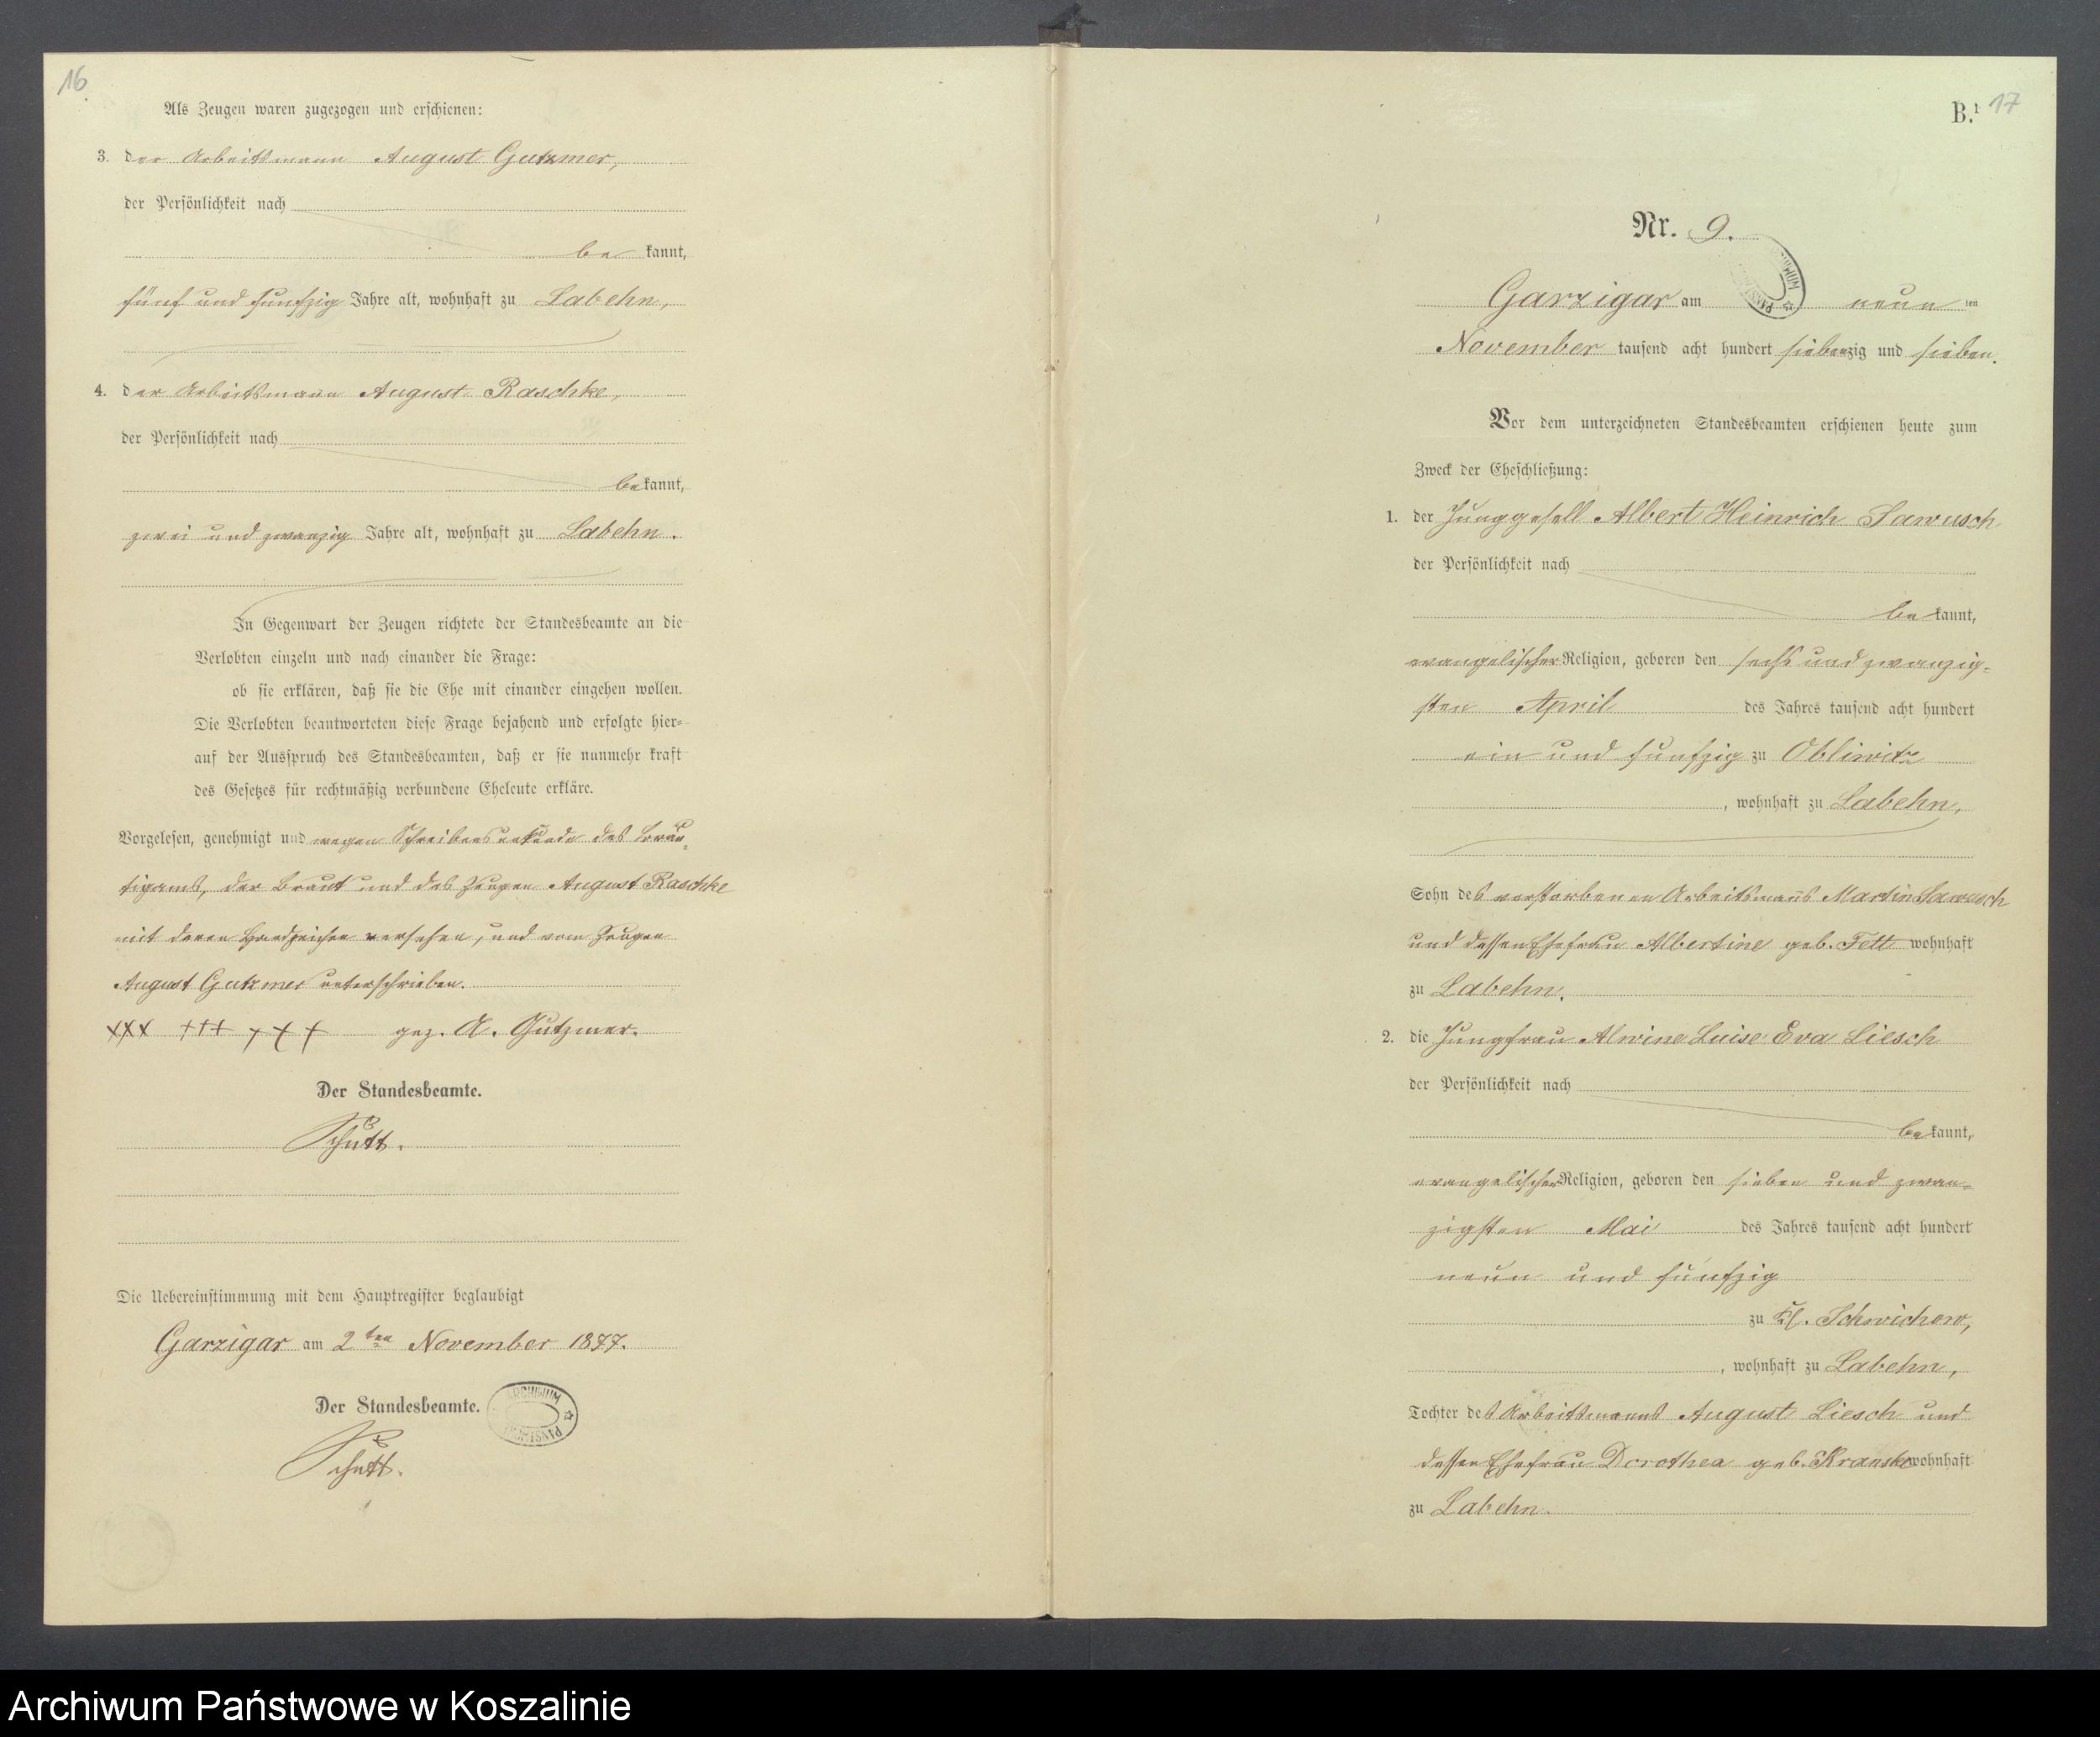 16
Als Zeugen waren zugezogen und erschienen:
3. der Arbeitsmann August Gutzmer,
der Persönlichkeit nach
be kannt,
fünf und funfzig Jahre alt, wohnhaft zu Labehn,
4. der Arbeitsmann August Raschke,
der Persönlichkeit nach
be kannt,
zwei und zwanzig Jahre alt, wohnhaft zu Labehn.
In Gegenwart der Zeugen richtete der Standesbeamte an die
Verlobten einzeln und nach einander die Frage:
ob sie erklären, daß sie die Ehe mit einander eingehen wollen.
Die Verlobten beantworteten diese Frage bejahend und erfolgte hier-
auf der Ausspruch des Standesbeamten, daß er sie nunmehr kraft
des Gesetzes für rechtmäßig verbundene Eheleute erkläre.
Vorgelesen, genehmigt und wegen Schreibensunkunde des Bräu-
tigams, der Braut und des Zeugen August Raschke
mit deren Handzeichen versehen, und vom Zeugen
August Gutzmer unterschrieben.
xxx +++ +++ gez. A. Gutzmer.
Der Standesbeamte.
Schütt.
Die Uebereinstimmung mit dem Hauptregister beglaubigt
Garzigar am 2ten November 1877.
Der Standesbeamte.
ARCHIWUM
Schütt.
B.1 17
Nr. 9.
Garzigar am neun ten
November tausend acht hundert siebenzig und sieben.
Vor dem unterzeichneten Standesbeamten erschienen heute zum
Zweck der Eheschließung:
1. der Junggesell Albert Heinrich Sawusch
der Persönlichkeit nach
be kannt,
evangelischer Religion, geboren den sechs und zwanzig-
sten April des Jahres tausend acht hundert
ein und funfzig zu Obliwitz
, wohnhaft zu Labehn,
Sohn des verstorbenen Arbeitsmanns Martin Sawusch
und dessen Ehefrau Albertine geb. Tett wohnhaft
zu Labehn.
2. die Jungfrau Alwine Luise Eva Liesch
der Persönlichkeit nach
be kannt,
evangelischer Religion, geboren den sieben und zwan-
zigsten Mai des Jahres tausend acht hundert
neun und funfzig
zu Kl. Schwichow,
, wohnhaft zu Labehn,
Tochter des Arbeitsmanns August Liesch und
dessen Ehefrau Dorothea geb. wohnhaft
zu Labehn.
Archiwum Państwowe w Koszalinie